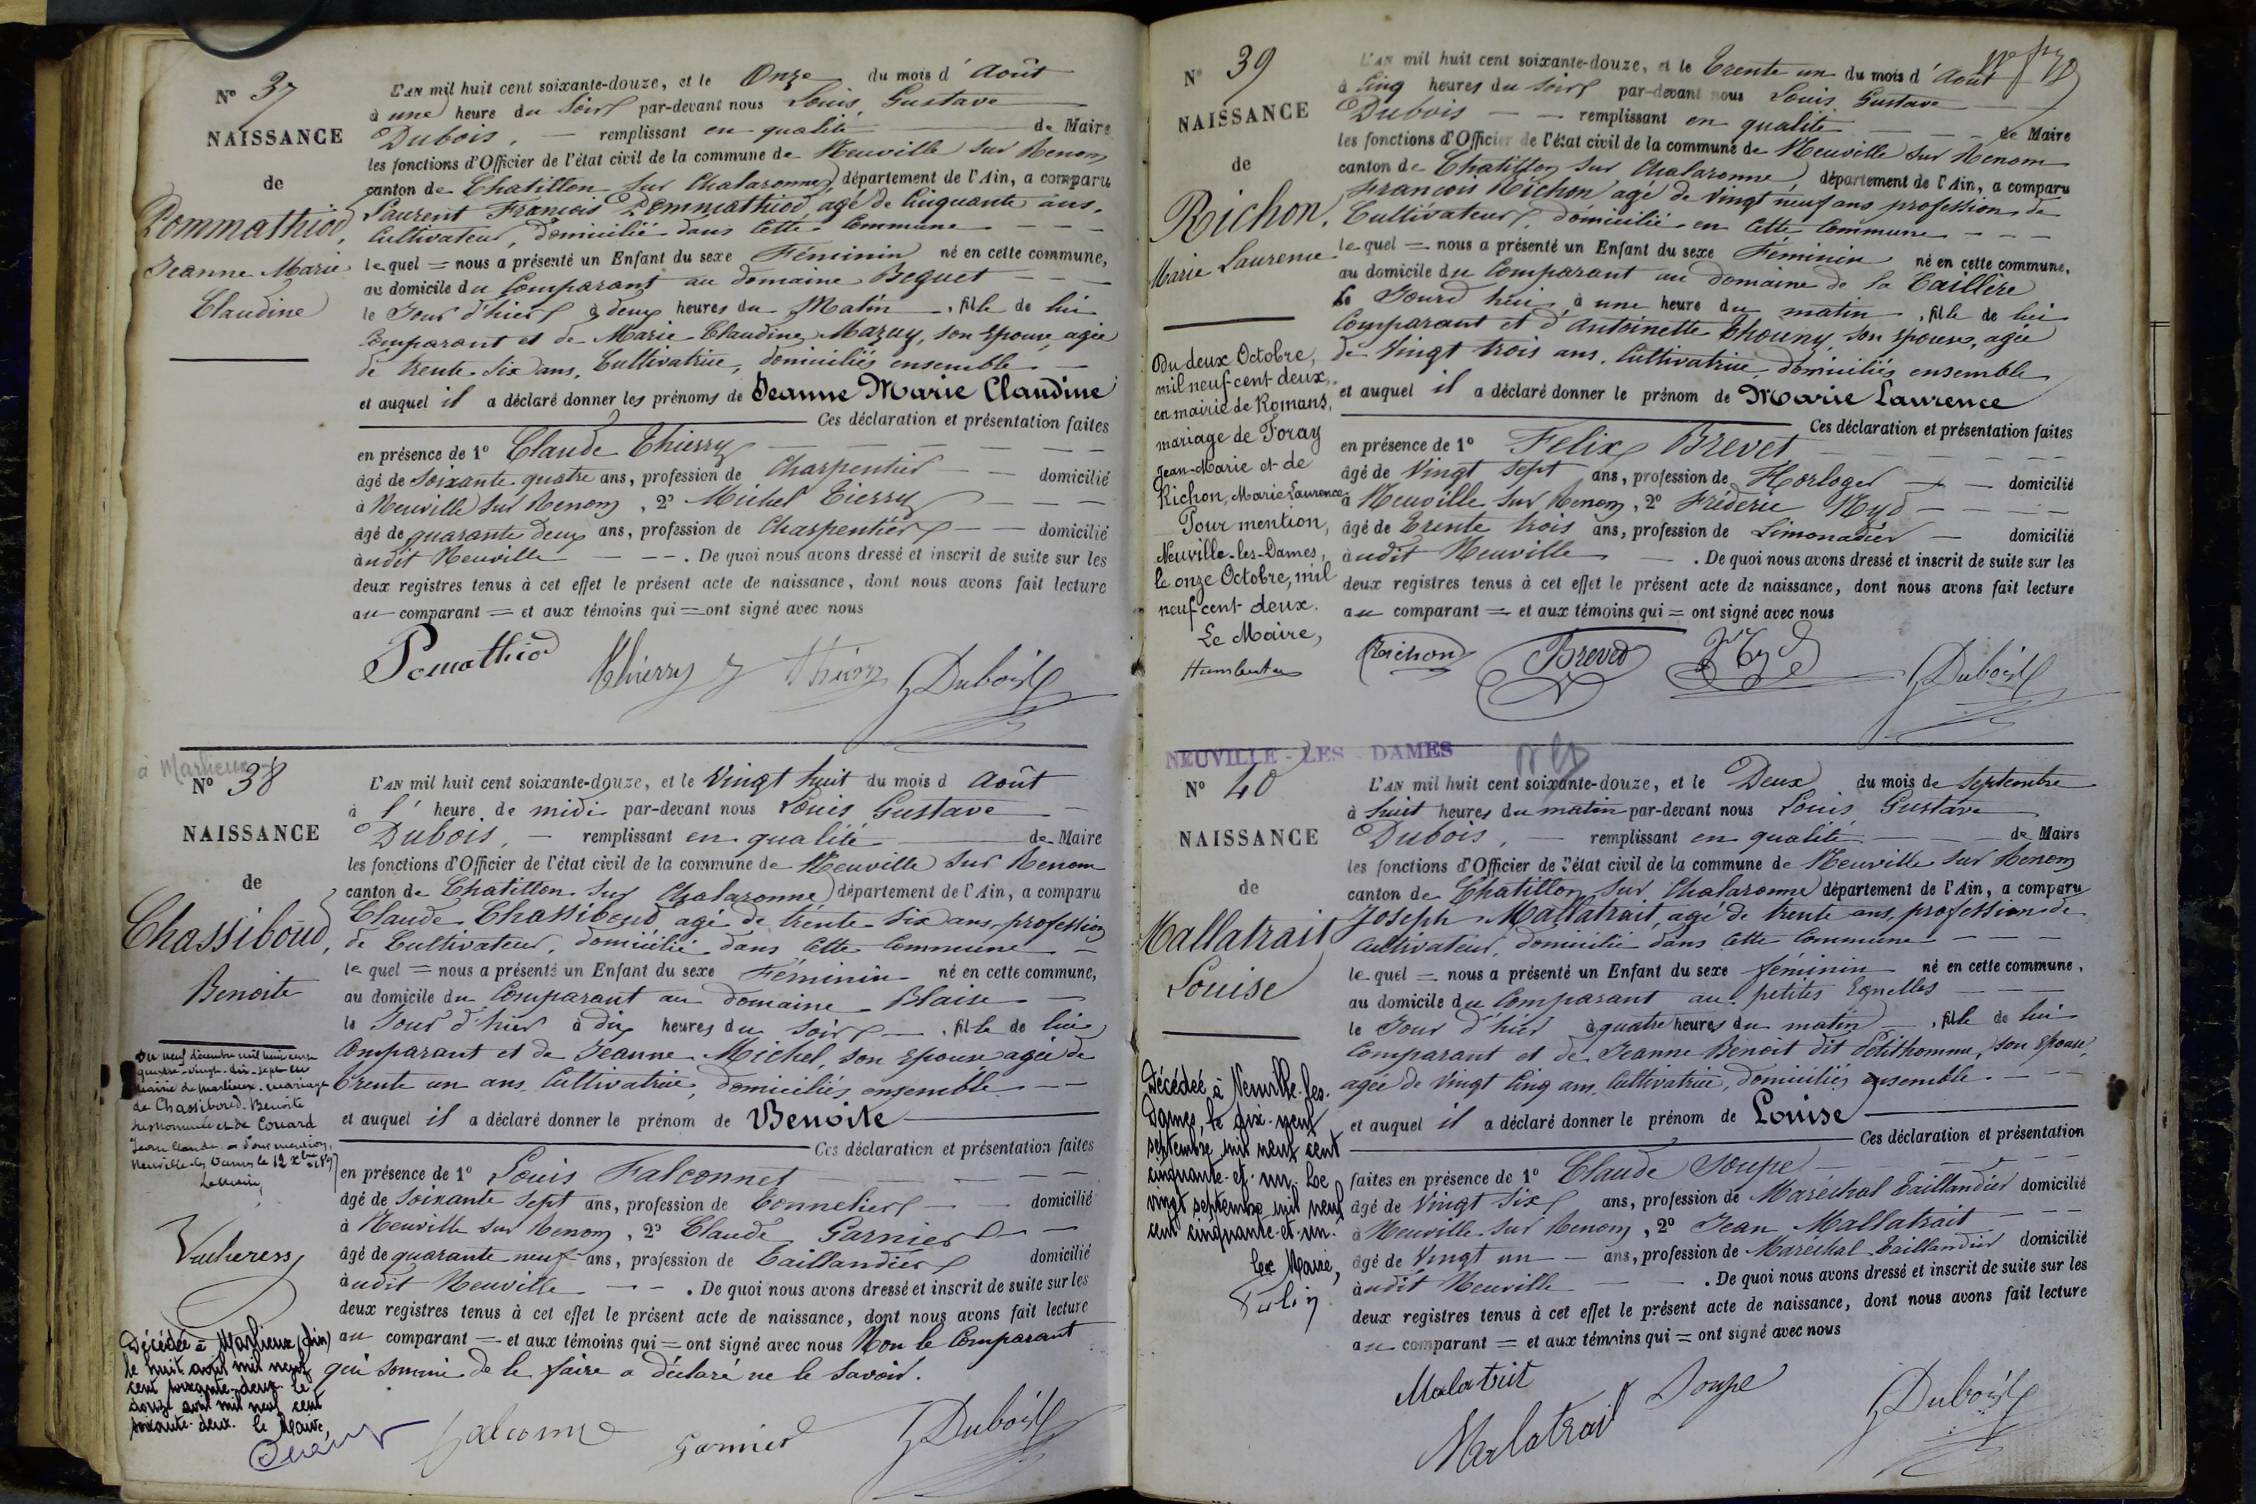 N° 37
NAISSANCE
de
Pommathiod,
Jeanne Marie
Claudine
L'AN mil huit cent soixante-douze, et le Onze du mois d'Août
à une heure du Soir par-devant nous Louis Gustave
Dubois, remplissant en qualité de Maire
les fonctions d'Officier de l'état civil de la commune de Neuville sur Renom
canton de Chatillon sur Chalaronne, département de l'Ain, a comparu
Laurent François Pommathiod agé de Cinquante ans,
Cultivateur, domicilié dans cette Commune
lequel = nous a présenté un Enfant du sexe Féminin né en cette commune,
au domicile du Comparant au domaine Bequet
le Jour d'hier à deux heures du Matin, fille de lui
Comparant et de Marie Claudine Mazuy, son épouse, agée
de trente six ans, Cultivatrice, domiciliés ensemble
et auquel il a déclaré donner les prénoms de Jeanne Marie Claudine
Ces déclaration et présentation faites
en présence de 1° Claude Thierry
âgé de Soixante quatre ans, profession de Charpentier domicilié
à Neuville sur Renom, 2° Michel Tierry
âgé de quarante deux ans, profession de Charpentier domicilié
àudit Neuville. De quoi nous avons dressé et inscrit de suite sur les
deux registres tenus à cet effet le présent acte de naissance, dont nous avons fait lecture
au comparant = et aux témoins qui = ont signé avec nous
Pomathiod Thierry Dubois
à Marlieux
N° 38
NAISSANCE
de
Chassiboud,
Benoite
Du neuf décembre mil huit cent
quatre-vingt-dix-sept en
mairie de Marlieux, mariage
de Chassiboud Benoite
susnommée et de Couard
Jean Claude. Pour mention,
Neuville-les-Dames le 12 Xbre 1897
Le Maire,
Décédée à Marlieux (Ain)
le huit avril mil neuf
cent soixante-deux le
douze avril mil neuf cent
soixante-deux. Le Maire,
L'AN mil huit cent soixante-douze, et le Vingt huit du mois d Août
à l' heure de midi par-devant nous Louis Gustave
Dubois, remplissant en qualité de Maire
les fonctions d'Officier de l'état civil de la commune de Neuville sur Renom
canton de Chatillon sur Chalaronne, département de l'Ain, a comparu
Claude Chassiboud agé de trente six ans, profession
de Cultivateur, domicilié dans cette Commune
lequel = nous a présenté un Enfant du sexe Féminin né en cette commune,
au domicile du Comparant au domaine Blaise
le Jour d'hier à dix heures du soir, fille de lui
Comparant et de Jeanne Michel, son épouse agée de
trente un ans, Cultivatrice, domiciliés ensemble
et auquel il a déclaré donner le prénom de Benoite
Ces déclaration et présentation faites
en présence de 1° Louis Falconnet
âgé de soixante sept ans, profession de Tonnelier domicilié
à Neuville sur Renom, 2° Claude Garnier
âgé de quarante neuf ans, profession de Taillandier domicilié
àudit Neuville. De quoi nous avons dressé et inscrit de suite sur les
deux registres tenus à cet effet le présent acte de naissance, dont nous avons fait lecture
au comparant = et aux témoins qui = ont signé avec nous Non le Comparant
qui sommé de le faire a déclaré ne le savoir.
Falconnet Garnier Dubois
N° 39
NAISSANCE
de
Richon,
Marie Laurence
Du deux Octobre,
mil neuf cent deux,
en mairie de Romans,
mariage de Foray
Jean-Marie et de
Richon, Marie Laurence
Pour mention,
Neuville-les-Dames,
le onze Octobre, mil
neuf cent deux.
Le Maire,
L'AN mil huit cent soixante-douze, et le Trente un du mois d'Août
à Cinq heures du soir par-devant nous Louis Gustave
Dubois remplissant en qualité de Maire
les fonctions d'Officier de l'état civil de la commune de Neuville sur Renom
canton de Chatillon sur Chalaronne, département de l'Ain, a comparu
François Richon agé de vingt neuf ans profession de
Cultivateur, domicilié en cette Commune
lequel = nous a présenté un Enfant du sexe Féminin né en cette commune,
au domicile du Comparant au domaine de la Taillère
le Jourd'hui à une heure du matin, fille de lui
Comparant et d'Antoinette Chouny, son épouse, agée
de Vingt trois ans, Cultivatrice, domiciliés ensemble
et auquel il a déclaré donner le prénom de Marie Laurence
Ces déclaration et présentation faites
en présence de 1° Felix Brevet
âgé de Vingt sept ans, profession de Horloger domicilié
à Neuville sur Renom, 2° Fréderic Nyd
âgé de Trente trois ans, profession de Limonadier domicilié
àudit Neuville. De quoi nous avons dressé et inscrit de suite sur les
deux registres tenus à cet effet le présent acte de naissance, dont nous avons fait lecture
au comparant = et aux témoins qui = ont signé avec nous
Richon Brevet Dubois
NEUVILLE-LES-DAMES
N° 40
NAISSANCE
de
Mallatrait
Louise
Décédée à Neuville-les-
Dames, le dix-neuf
septembre mil neuf cent
cinquante-et-un. Le
vingt septembre mil neuf
cent cinquante-et-un.
Le Maire,
L'AN mil huit cent soixante-douze, et le Deux du mois de Septembre
à huit heures du matin par-devant nous Louis Gustave
Dubois, remplissant en qualité de Maire
les fonctions d'Officier de l'état civil de la commune de Neuville sur Renom
canton de Chatillon sur Chalaronne département de l'Ain, a comparu
Joseph Mallatrait, agé de trente ans, profession de
Cultivateur, domicilié dans cette Commune
lequel = nous a présenté un Enfant du sexe féminin né en cette commune,
au domicile du Comparant au petites Egnelles
le Jour d'hier à quatre heures du matin, fille de lui
Comparant et de Jeanne Benoit dit Petithomme, son épouse,
agée de Vingt Cinq ans, Cultivatrice, domiciliés ensemble
et auquel il a déclaré donner le prénom de Louise
Ces déclaration et présentation
faites en présence de 1° Claude Soupe
âgé de Vingt six ans, profession de Maréchal Taillandier domicilié
à Neuville sur Renom, 2° Jean Mallatrait
âgé de Vingt un ans, profession de Maréchal Taillandier domicilié
àudit Neuville. De quoi nous avons dressé et inscrit de suite sur les
deux registres tenus à cet effet le présent acte de naissance, dont nous avons fait lecture
au comparant = et aux témoins qui = ont signé avec nous
Malatrait Soupe Dubois
Malatrait